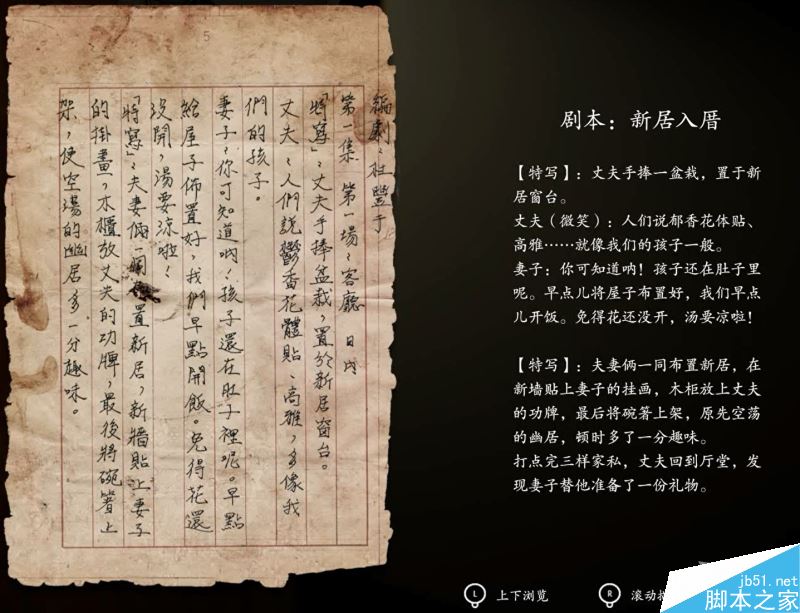 5
編劇：杜豐于
第一集 第一場：客廳 日內
「特寫」：丈夫手捧盆栽，置於新居窗台。
丈夫：人們說鬱香花體貼 高雅，多像我
們的孩子。
妻子：你可知道吶！孩子還在肚子裡呢。早點
給屋子佈置好，我們早點開飯。免得花還
沒開，湯要涼啦！
「特寫」：夫妻倆一同置新居，新牆貼上妻子
的掛畫，木櫃放丈夫的功牌，最後將碗箸上
架，使空蕩的幽居多一分趣味。
剧本：新居入厝
【特写】：丈夫手捧一盆栽，置于新
居窗台。
丈夫（微笑）：人们说郁香花体贴、
高雅……就像我们的孩子一般。
妻子：你可知道呐！孩子还在肚子里
呢。早点儿将屋子布置好，我们早点
儿开饭。免得花还没开，汤要凉啦！
【特写】：夫妻俩一同布置新居，在
新墙贴上妻子的挂画，木柜放上丈夫
的功牌，最后将碗箸上架，原先空荡
的幽居，顿时多了一分趣味。
打点完三样家私，丈夫回到厅堂，发
现妻子替他准备了一份礼物。
L 上下浏览
R 滚动
jb51.net
脚本之家